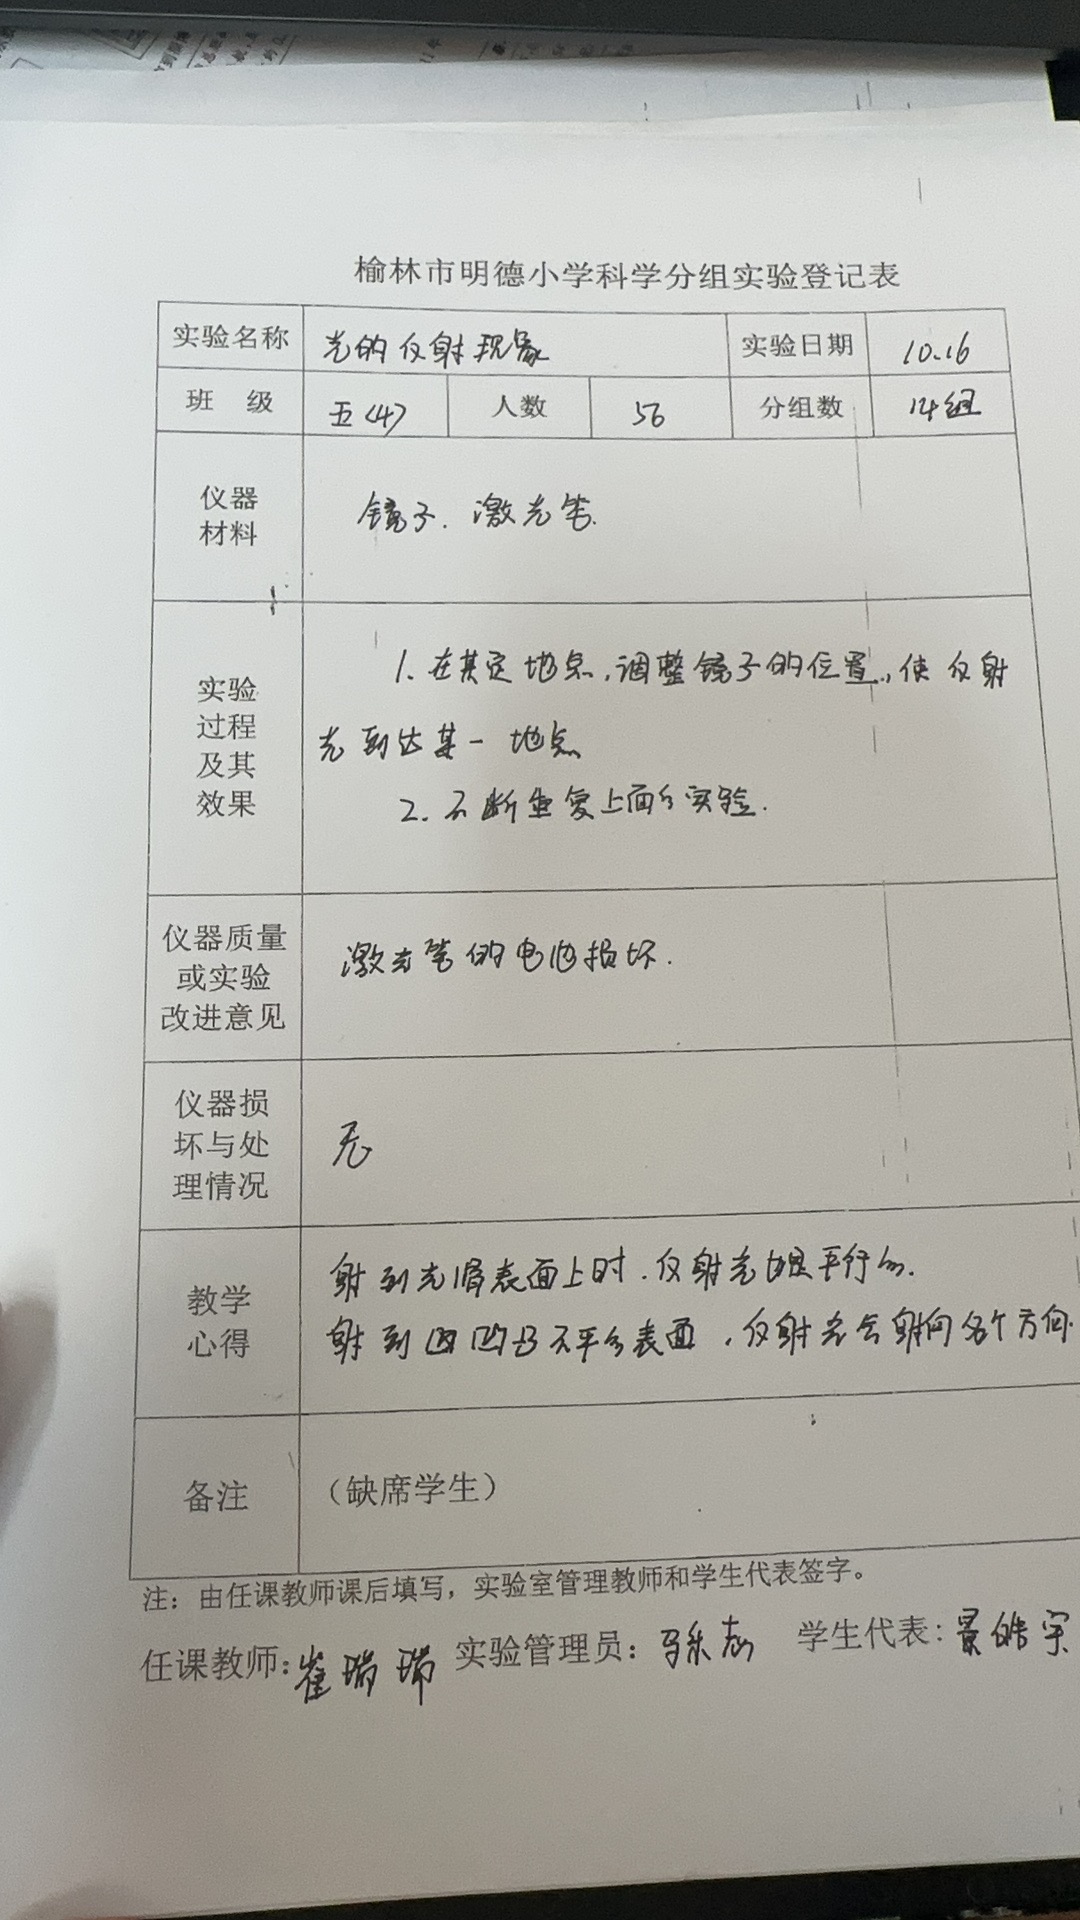 榆林市明德小学科学分组实验登记表
实验名称 光的反射现象 实验日期 10.16
班 级 五<4> 人数 56 分组数 14组
仪器
材料
镜子. 激光笔.
实验
过程
及其
效果
1. 在某定地点,调整镜子的位置,使反射
光到达某一地点
2. 不断重复上面的实验.
仪器质量
或实验
改进意见
激光笔的电池损坏.
仪器损
坏与处
理情况
无
教学
心得
射到光滑表面上时.反射光也是平行的.
射到凹凸不平的表面,反射光会射向各个方向.
备注
(缺席学生)
注:由任课教师课后填写,实验室管理教师和学生代表签字。
任课教师:崔瑞瑞 实验管理员: 学生代表:景皓宇